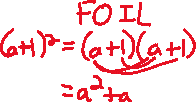 FOIL
(a+1)²=(a+1)(a+1)
=a²+a